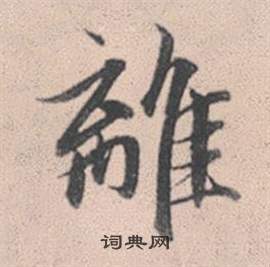 離
词典网